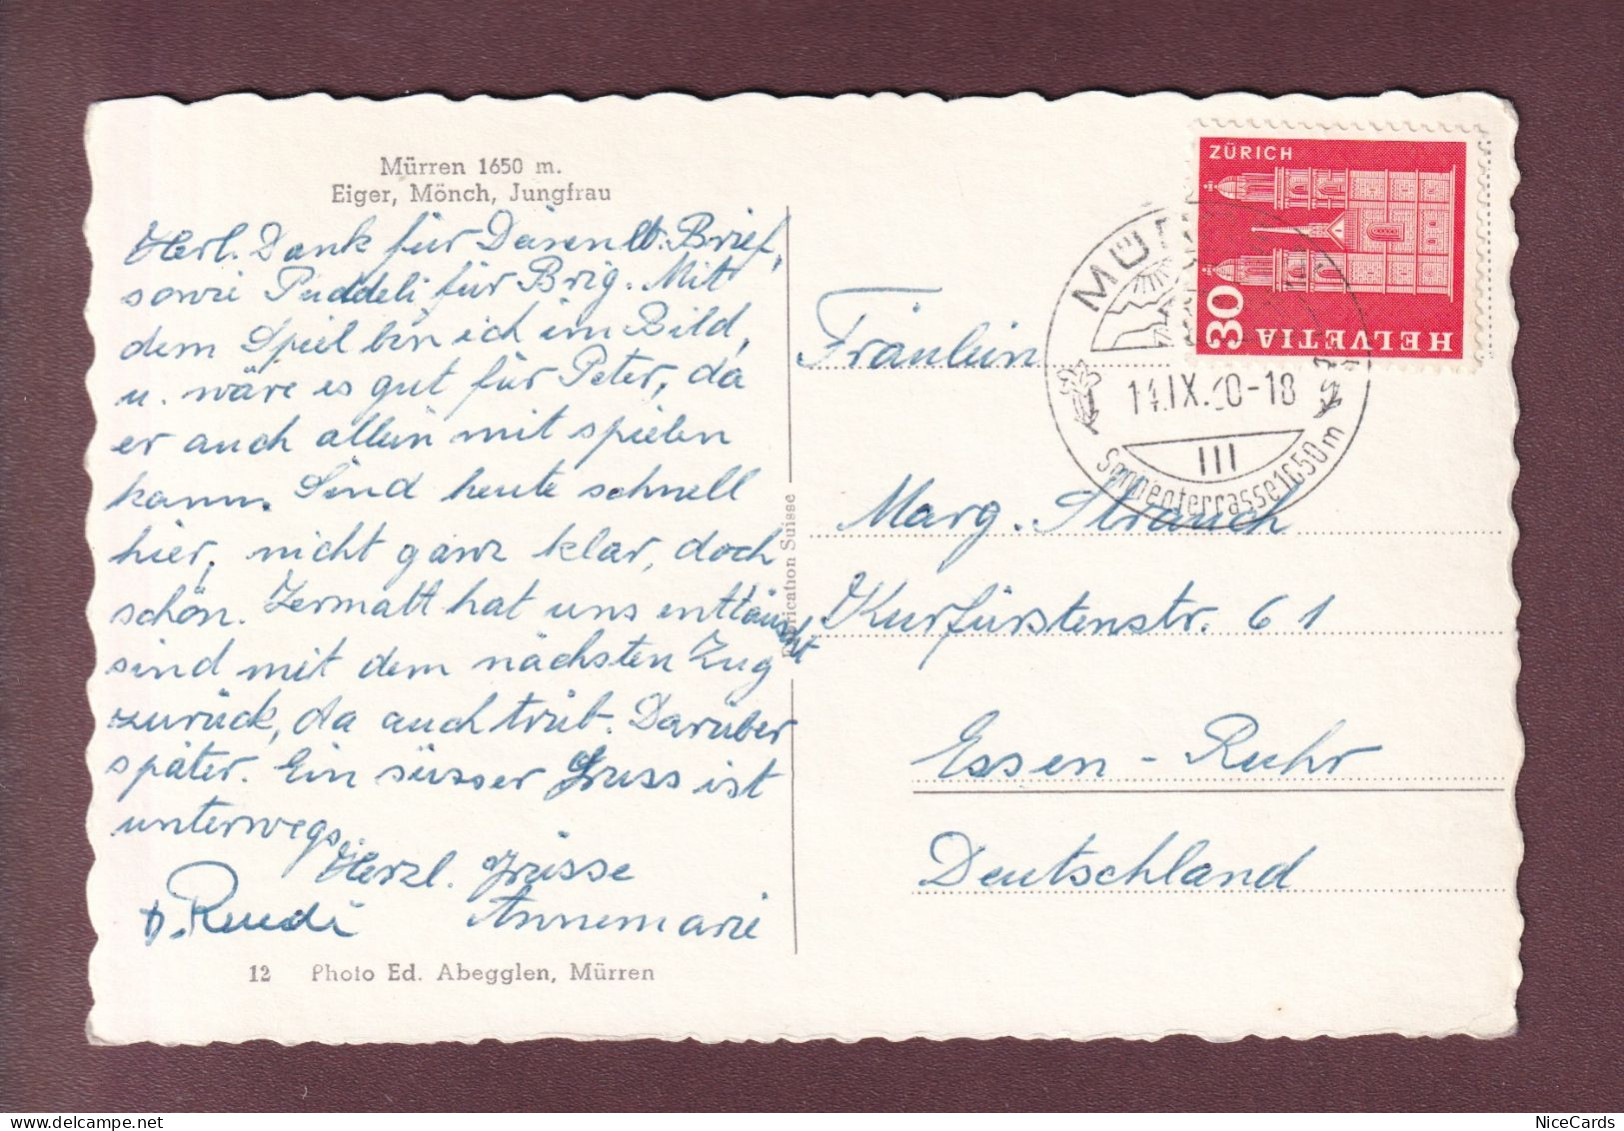 Mürren 1650 m.
Eiger, Mönch, Jungfrau
Herzl. Dank für Brief,
sowie Puddeli für Brig. Mit
dem Spiel bin ich im Bild,
u. wäre es gut für Peter, da
er auch allein mit spielen
kann. Sind heute schnell
hier, nicht ganz klar, doch
schön. Zermatt hat uns enttäuscht
sind mit dem nächsten Zug
zurück, da auch trüb. Darüber
später. Ein süsser Gruss ist
unterwegs.
Herzl. Grüsse
Ruedi Annemarie
12 Photo Ed. Abegglen, Mürren
Fabrication Suisse
ZÜRICH
30
HELVETIA
14.IX.60-18
III
Sonnenterrasse 1650m
Fräulein
Marg. Strauch
Kurfürstenstr. 61
Essen-Ruhr
Deutschland
NiceCards